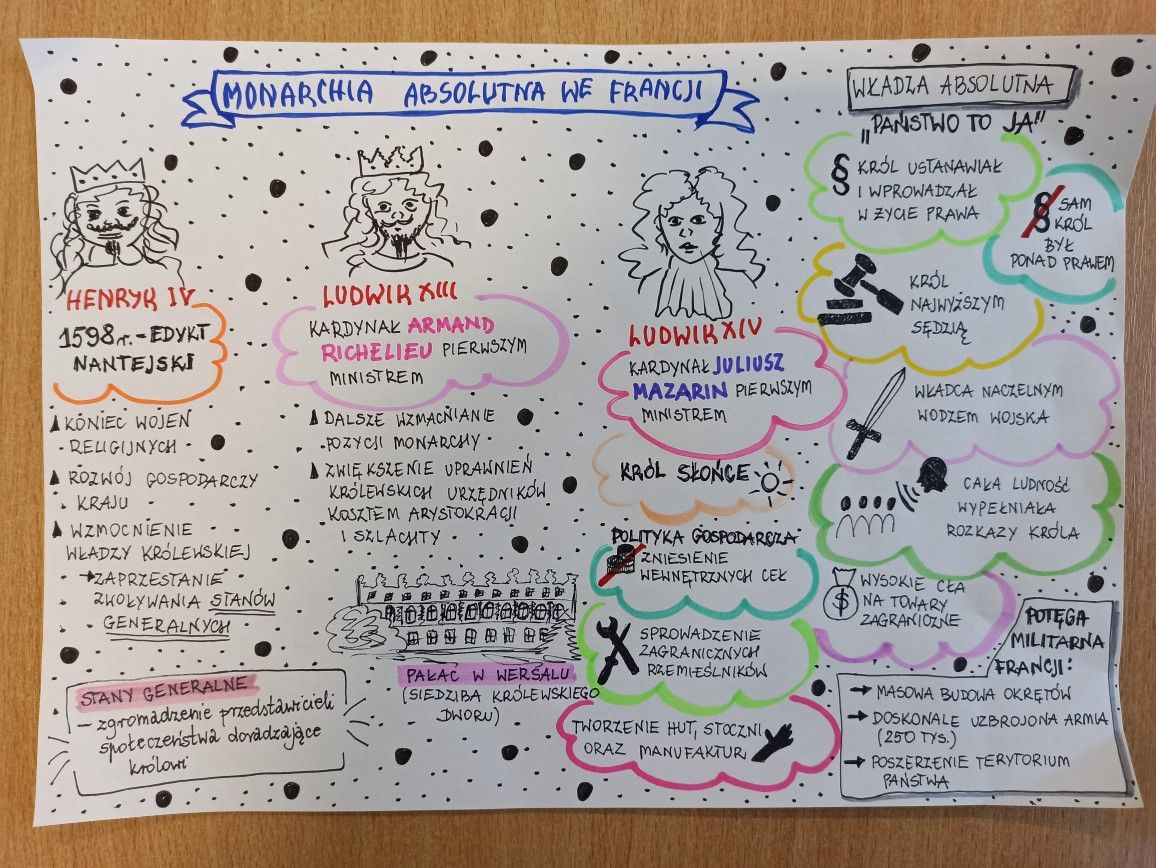 MONARCHIA ABSOLUTNA WE FRANCJI
HENRYK IV
1598r. - EDYKT
NANTEJSKI
KONIEC WOJEN
RELIGIJNYCH
ROZWÓJ GOSPODARCZY
KRAJU
WZMOCNIENIE
WŁADZY KRÓLEWSKIEJ
→ ZAPRZESTANIE
ZWOŁYWANIA STANÓW
GENERALNYCH
STANY GENERALNE
- zgromadzenie przedstawicieli
społeczeństwa doradzające
królowi
LUDWIK XIII
KARDYNAŁ ARMAND
RICHELIEU PIERWSZYM
MINISTREM
DALSZE WZMACNIANIE
POZYCJI MONARCHY
ZWIĘKSZENIE UPRAWNIEŃ
KRÓLEWSKICH URZĘDNIKÓW
KOSZTEM ARYSTOKRACJI
I SZLACHTY
PAŁAC W WERSALU
(SIEDZIBA KRÓLEWSKIEGO
DWORU)
LUDWIK XIV
KARDYNAŁ JULIUSZ
MAZARIN PIERWSZYM
MINISTREM
KRÓL SŁOŃCE
POLITYKA GOSPODARCZA
ZNIESIENIE
WEWNĘTRZNYCH CEŁ
SPROWADZENIE
ZAGRANICZNYCH
RZEMIEŚLNIKÓW
TWORZENIE HUT, STOCZNI
ORAZ MANUFAKTUR
WŁADZA ABSOLUTNA
„PAŃSTWO TO JA"
§ KRÓL USTANAWIAŁ
I WPROWADZAŁ
W ŻYCIE PRAWA
§ SAM
KRÓL
BYŁ
PONAD PRAWEM
KRÓL
NAJWYŻSZYM
SĘDZIĄ
WŁADCA NACZELNYM
WODZEM WOJSKA
CAŁA LUDNOŚĆ
WYPEŁNIAŁA
ROZKAZY KRÓLA
$ WYSOKIE CŁA
NA TOWARY
ZAGRANICZNE
POTĘGA
MILITARNA
FRANCJI:
→ MASOWA BUDOWA OKRĘTÓW
→ DOSKONALE UZBROJONA ARMIA
(250 TYS.)
→ POSZERZENIE TERYTORIUM
PAŃSTWA